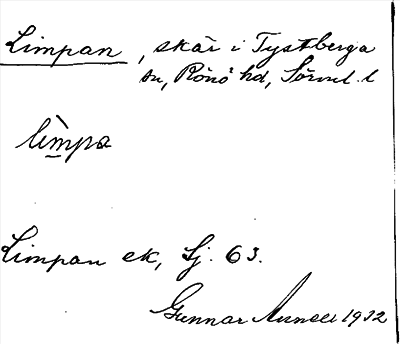 Limpan, skär i Tystberga
sn, Rönö hd, Sörml. l
lìmpa
Limpan ek, Sj. 63.
Gunnar 1932